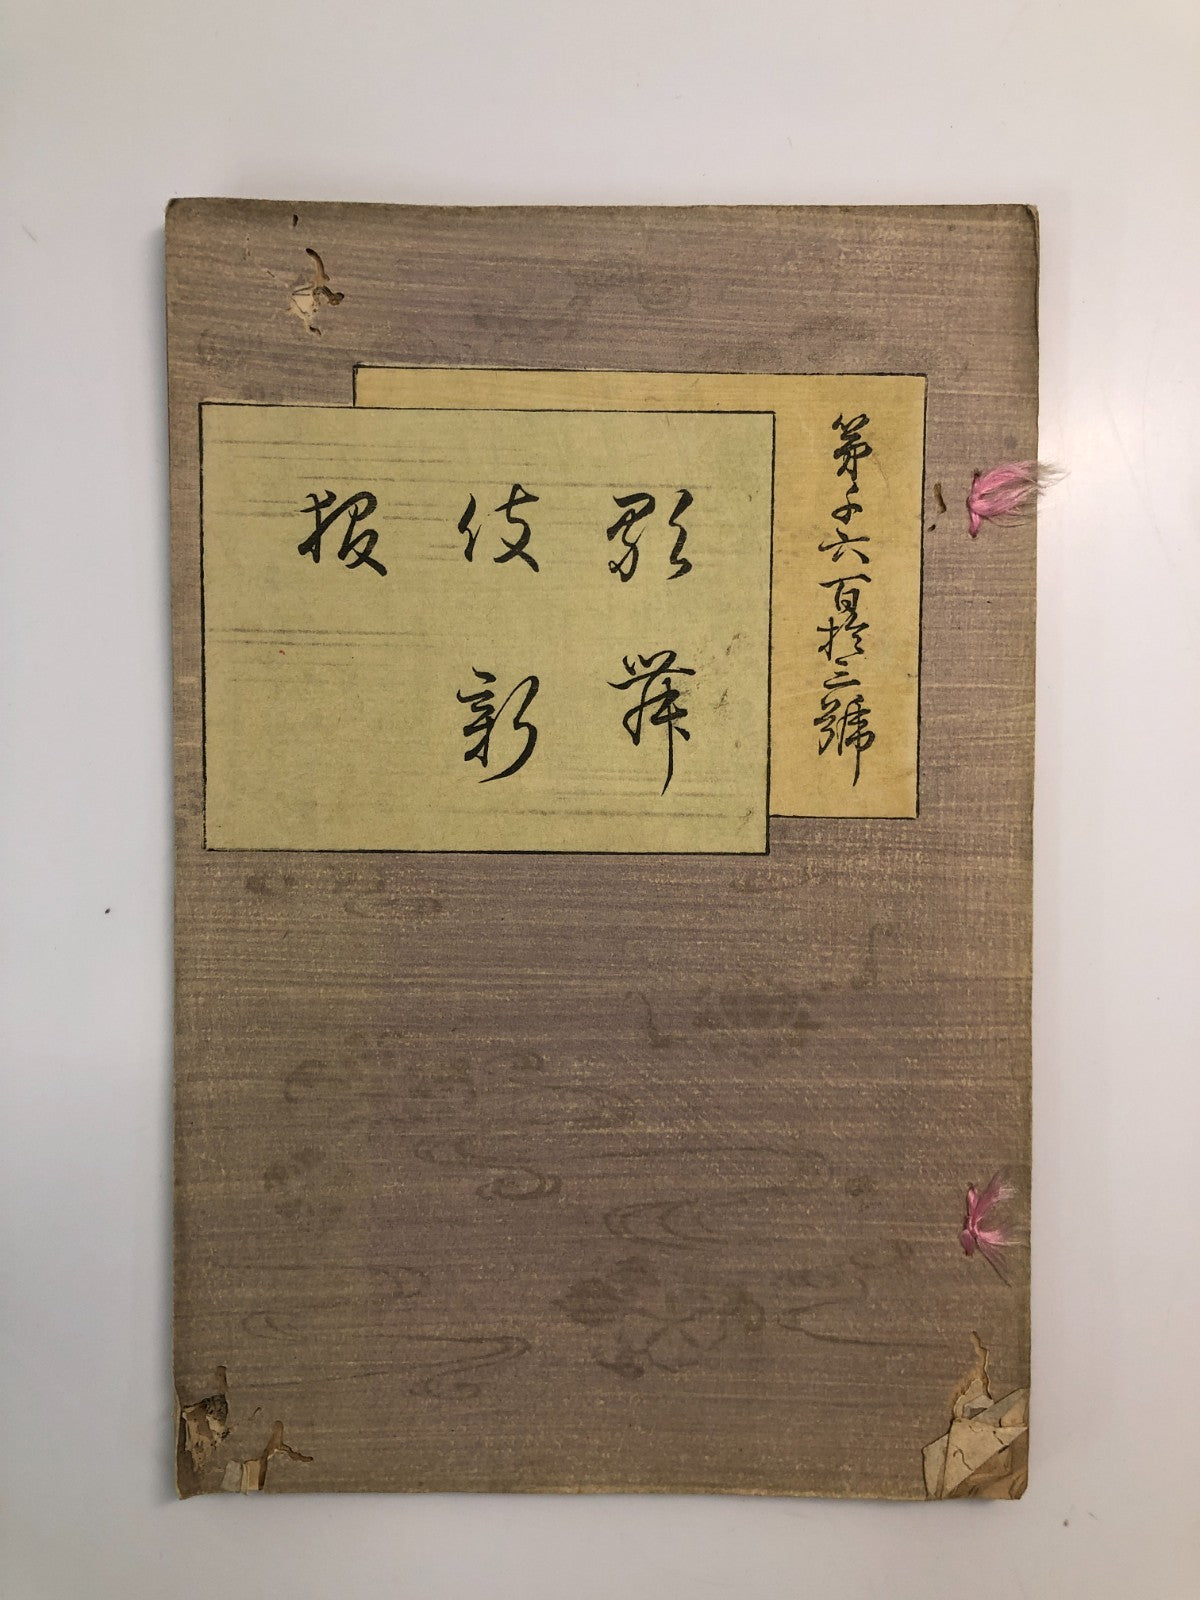 第千六百拾三號
歌舞
伎新
報